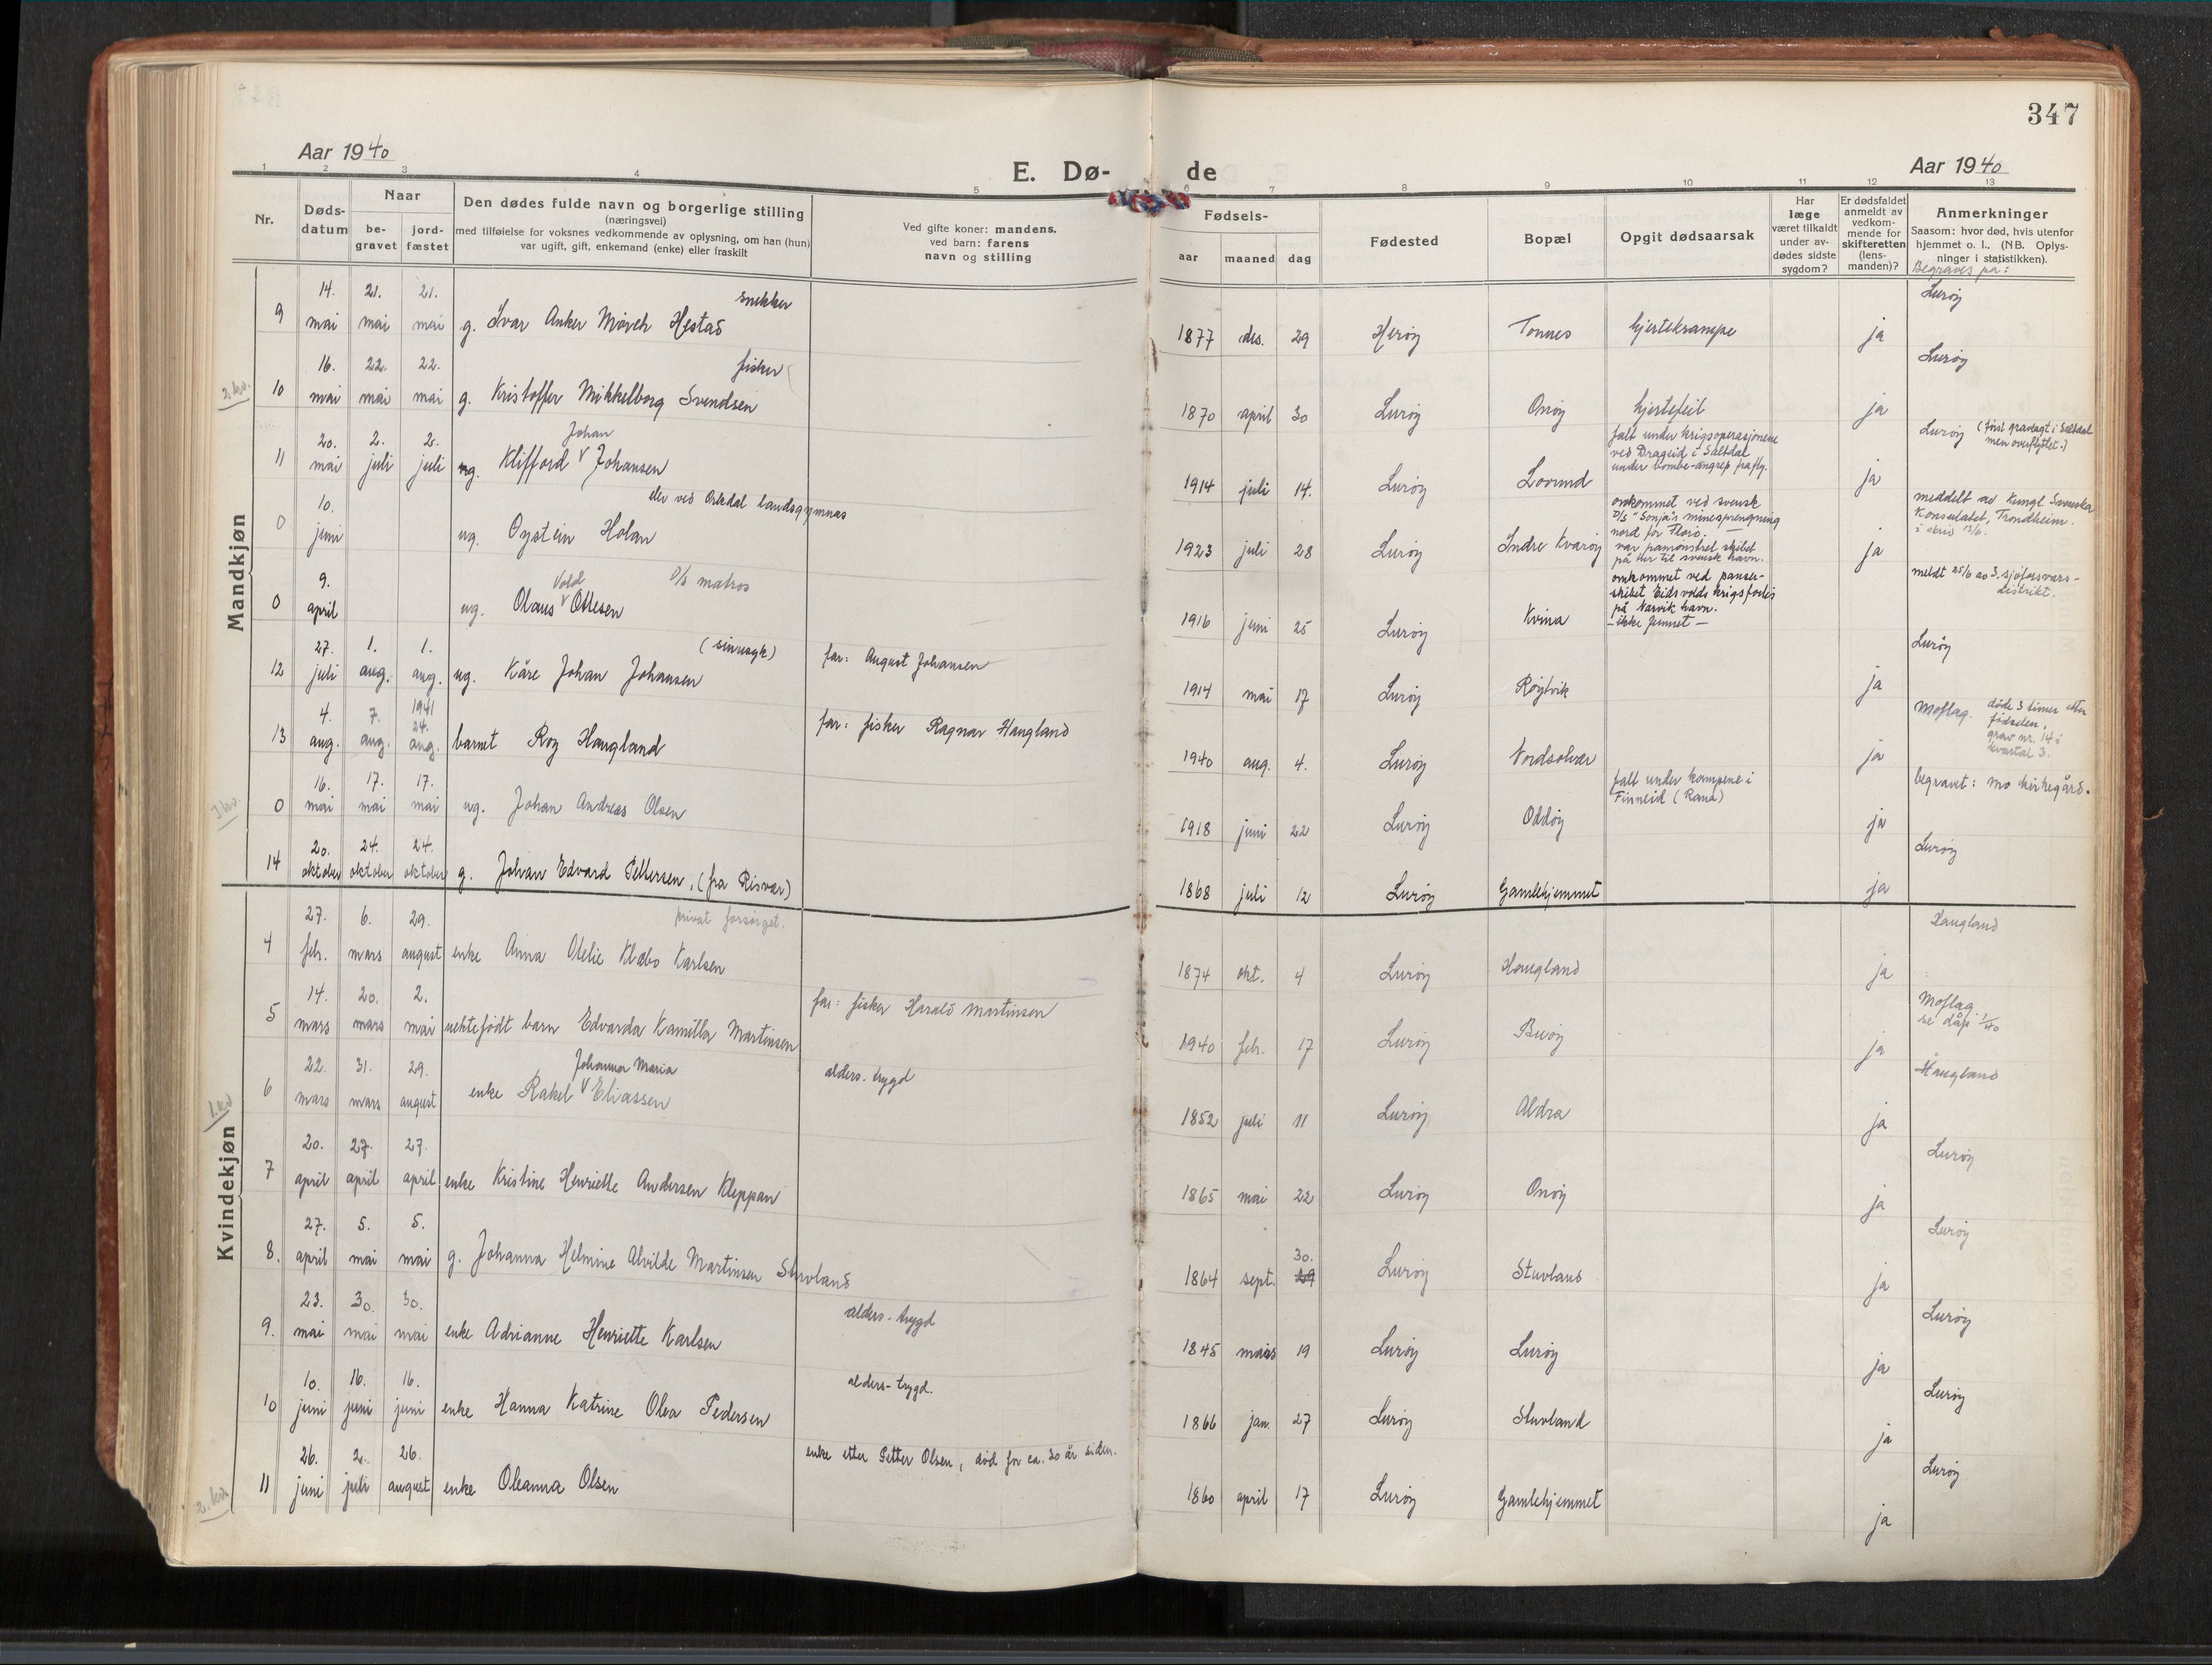 347
Aar 1940
E. Dø-
de
Aar 1940
1 2 3 4 5 6 7 8 9 10 11 12 13
Nr.
Døds-
datum
Naar
be-
gravet
jord-
fæstet
Den dødes fulde navn og borgerlige stilling
(næringsvei)
med tilføielse for voksnes vedkommende av oplysning, om han (hun)
var ugift, gift, enkemand (enke) eller fraskilt
Ved gifte koner: mandens,
ved barn: farens
navn og stilling
Fødsels-
aar maaned dag
Fødested
Bopæl
Opgit dødsaarsak
Har
læge
været tilkaldt
under av-
dødes sidste
sygdom?
Er dødsfaldet
anmeldt av
vedkom-
mende for
skifteretten
(lens-
manden)?
Anmerkninger
Saasom: hvor død, hvis utenfor
hjemmet o. l., (NB. Oplys-
ninger i statistikken).
Begraves på:
Mandkjøn
14. 21. 21. snekker Lurøy
9 mai mai mai g. Ivar Anker Mørch Hestad 1877 des. 29 Herøy Tonnes hjertekrampe ja
16. 22. 22. fisker Lurøy
2. kv. 10 mai mai mai g. Kristoffer Mikkelborg Svendsen 1870 april 30 Lurøy Onøy hjertefeil ja
20. 2. 2. Johan
11 mai juli juli ug. Klifford V Johansen 1914 juli 14. Lurøy Lovund
falt under krigsoperasjonene
ved Drageid i Saltdal
under bombe-angrep fra fly.
ja
Lurøy (først gravlagt i Saltdal
men overflyttet.)
10. elev ved Orkdal landsgymnas
0 juni ug. Oystein Holan 1923 juli 28 Lurøy Indre Kvarøy
omkommet ved svensk
D/S "Sonja"s minesprengning
nord for Florø.
var påmønstret skibet
på tur til svensk havn.
ja
meddelt av Kungl. Svenska
Konsulatet, Trondheim.
i skriv 13/6.
9. Vold D/S matros
0 april ug. Olaus V Ottesen 1916 juni 25 Lurøy Kvina
omkommet ved panser-
skibet Eidsvolds krigsforlis
på Narvik havn.
- ikke funnet -
meldt 25/6 av 3. sjøforsvars-
distrikt.
27. 1. 1. (sinnsyk) Lurøy
12 juli aug. aug. ug. Kåre Johan Johansen far: August Johansen 1914 mai 17 Lurøy Røytvik ja
4. 7. 1941 24.
13 aug. aug. aug. barnet Roy Haugland far: fisker Ragnar Haugland 1940 aug. 4. Lurøy Nordsolvær ja
Moflag. døde 3 timer etter
fødselen.
grav nr. 14 i
kvartal 3.
16. 17. 17.
3 kv. 0 mai mai mai ug. Johan Andreas Olsen 1918 juni 22 Lurøy Oddøy
falt under kampene i
Finneid (Rana)
ja
begravet: Mo kirkegård.
20. 24. 24. Lurøy
14 oktober oktober oktober g. Johan Edvard Pettersen, (fra Risvær) 1868 juli 12 Lurøy Gamlehjemmet ja
Kvindekjøn
27. 6. 29. privat forsørget. Haugland
4 febr. mars august enke Anna Otelie Klæbo Karlsen 1874 okt. 4 Lurøy Haugland ja
14. 20. 2.
5 mars mars mai uektefødt barn Edvarda Kamilla Martinsen far: fisker Harald Martinsen 1940 feb. 17 Lurøy ja
Moflag
se dåp 1/40
22. 31. 29. Johanna Maria alders-trygd Haugland
1. kv 6 mars mars august enke Rakel V Eliassen 1852 juli 11 Lurøy Aldra ja
20. 27. 27. Lurøy
7 april april april enke Kristine Henriette Andersen Kleppan 1865 mai 22 Lurøy Onøy ja
27. 5. 5. Lurøy
8. april mai mai g. Johanna Helmine Alvilde Martinsen Stuvland 1864 sept. 30. 29 Lurøy Stuvland ja
23. 30. 30. alders-trygd Lurøy
9. mai mai mai enke Adrianne Henriette Karlsen 1845 mars 19 Lurøy Lurøy ja
10. 16. 16. alders-trygd. Lurøy
10 juni juni juni enke Hanna Katrine Olea Pedersen 1866 jan. 27 Lurøy Stuvland ja
26. 2. 26. enke etter Petter Olsen, død for ca. 30 år siden. Lurøy
2. kv. 11 juni juli august enke Oleanna Olsen 1860 april 17 Lurøy Gamlehjemmet ja